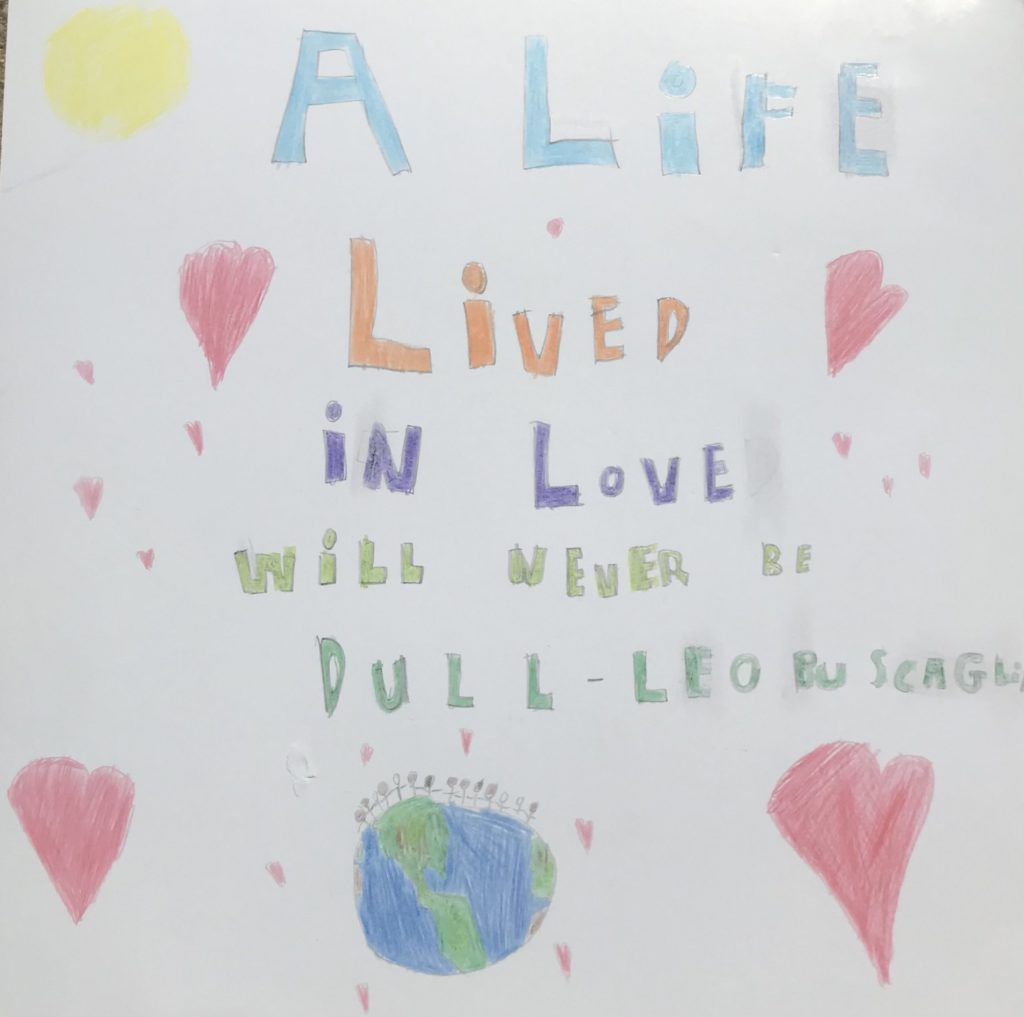 A LiFE
LiVED
iN LOVE
WiLL NEVER BE
DULL - LEO BUSCAGLiA